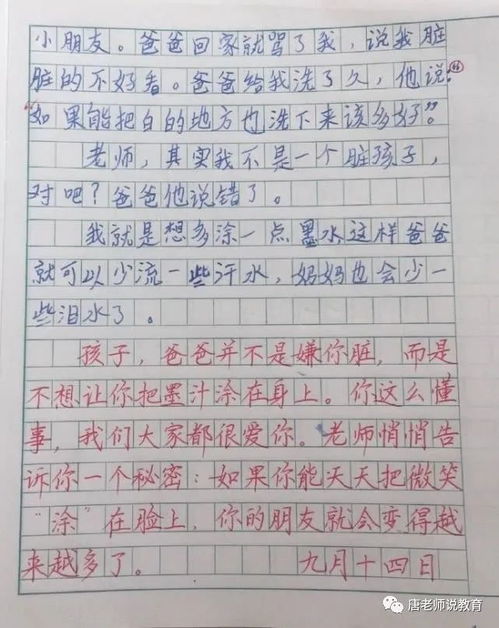 小朋友。爸爸回家就骂了我，说我脏
脏的不好看。爸爸给我洗了久，他说：
“如果能把白的地方也洗下来该多好”。
老师，其实我不是一个脏孩子，
对吧？爸爸他说错了。
我就是想多涂一点墨水这样爸爸
就可以少流一些汗水，妈妈也会少一
些泪水了。
孩子，爸爸并不是嫌你脏，而是
不想让你把墨汁涂在身上。你这么懂
事，我们大家都很爱你。老师悄悄告
诉你一个秘密：如果你能天天把微笑
“涂”在脸上，你的朋友就会变得越
来越多了。 九月十四日
唐老师说教育